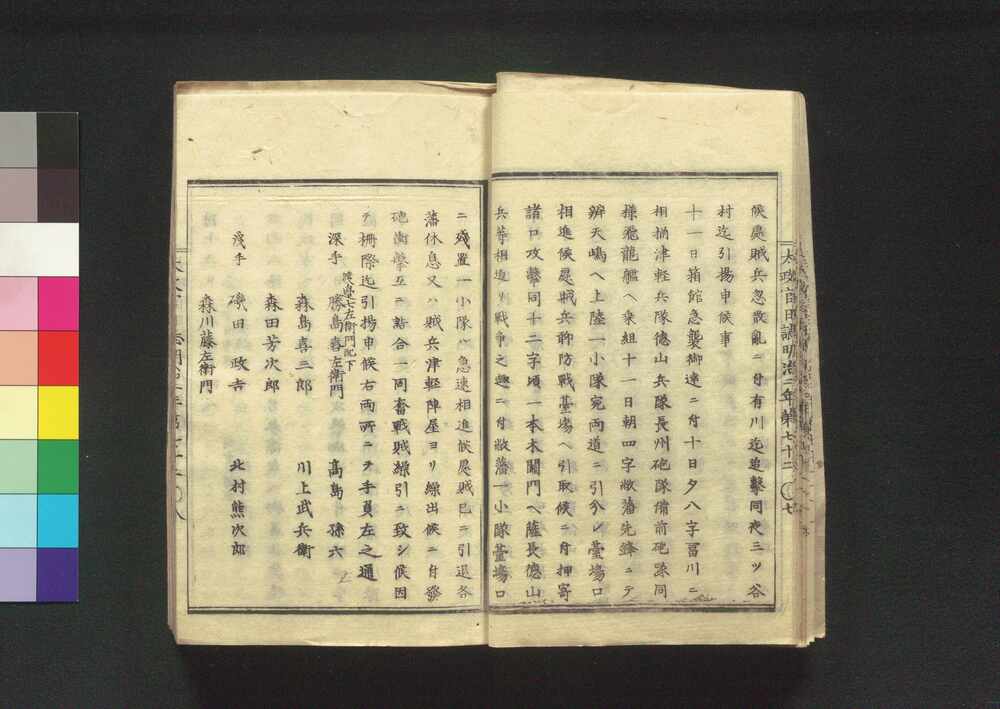 太政官日誌明治二年第七十二 〇七
候處賊兵忽散亂ニ付有川迄追撃同夜三ツ谷
村迄引揚申候事
十一日箱館急襲御達ニ付十日夕八字冨川ニ
相揃津軽兵隊德山兵隊長州砲隊備前砲隊同
様飛龍艦ヘ乗組十一日朝四字敝藩先鋒ニテ
辨天嶋ヘ上陸一小隊宛両道ニ引分レ臺場口
相進候處賊兵聊防戰臺場ヘ引取候ニ付押寄
諸口攻撃同十二字頃一本木關門ヘ薩長德山
兵等相進ミ戰争之趣ニ付敝藩一小隊臺場口
ニ残置一小隊ハ急速相進候處賊已ニ引退各
藩休息又ハ賊兵津軽陣屋ヨリ繰出候ニ付發
砲衝撃互ニ詰合一同奮戰賊繰引ニ致シ候因
テ柵際迄引揚申候右両所ニテ手負左之通
渡邊七左衛門配下
深手 勝島喜左衛門 高島孫六
森島喜三郎 川上武兵衛
森田芳次郎
浅手 磯田政吉 北村熊次郎
森川藤左衛門